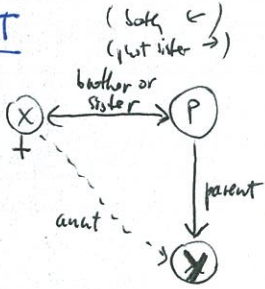 T
(both ←)
(just sister →)
brother or
sister
X
P
+
parent
aunt
Y